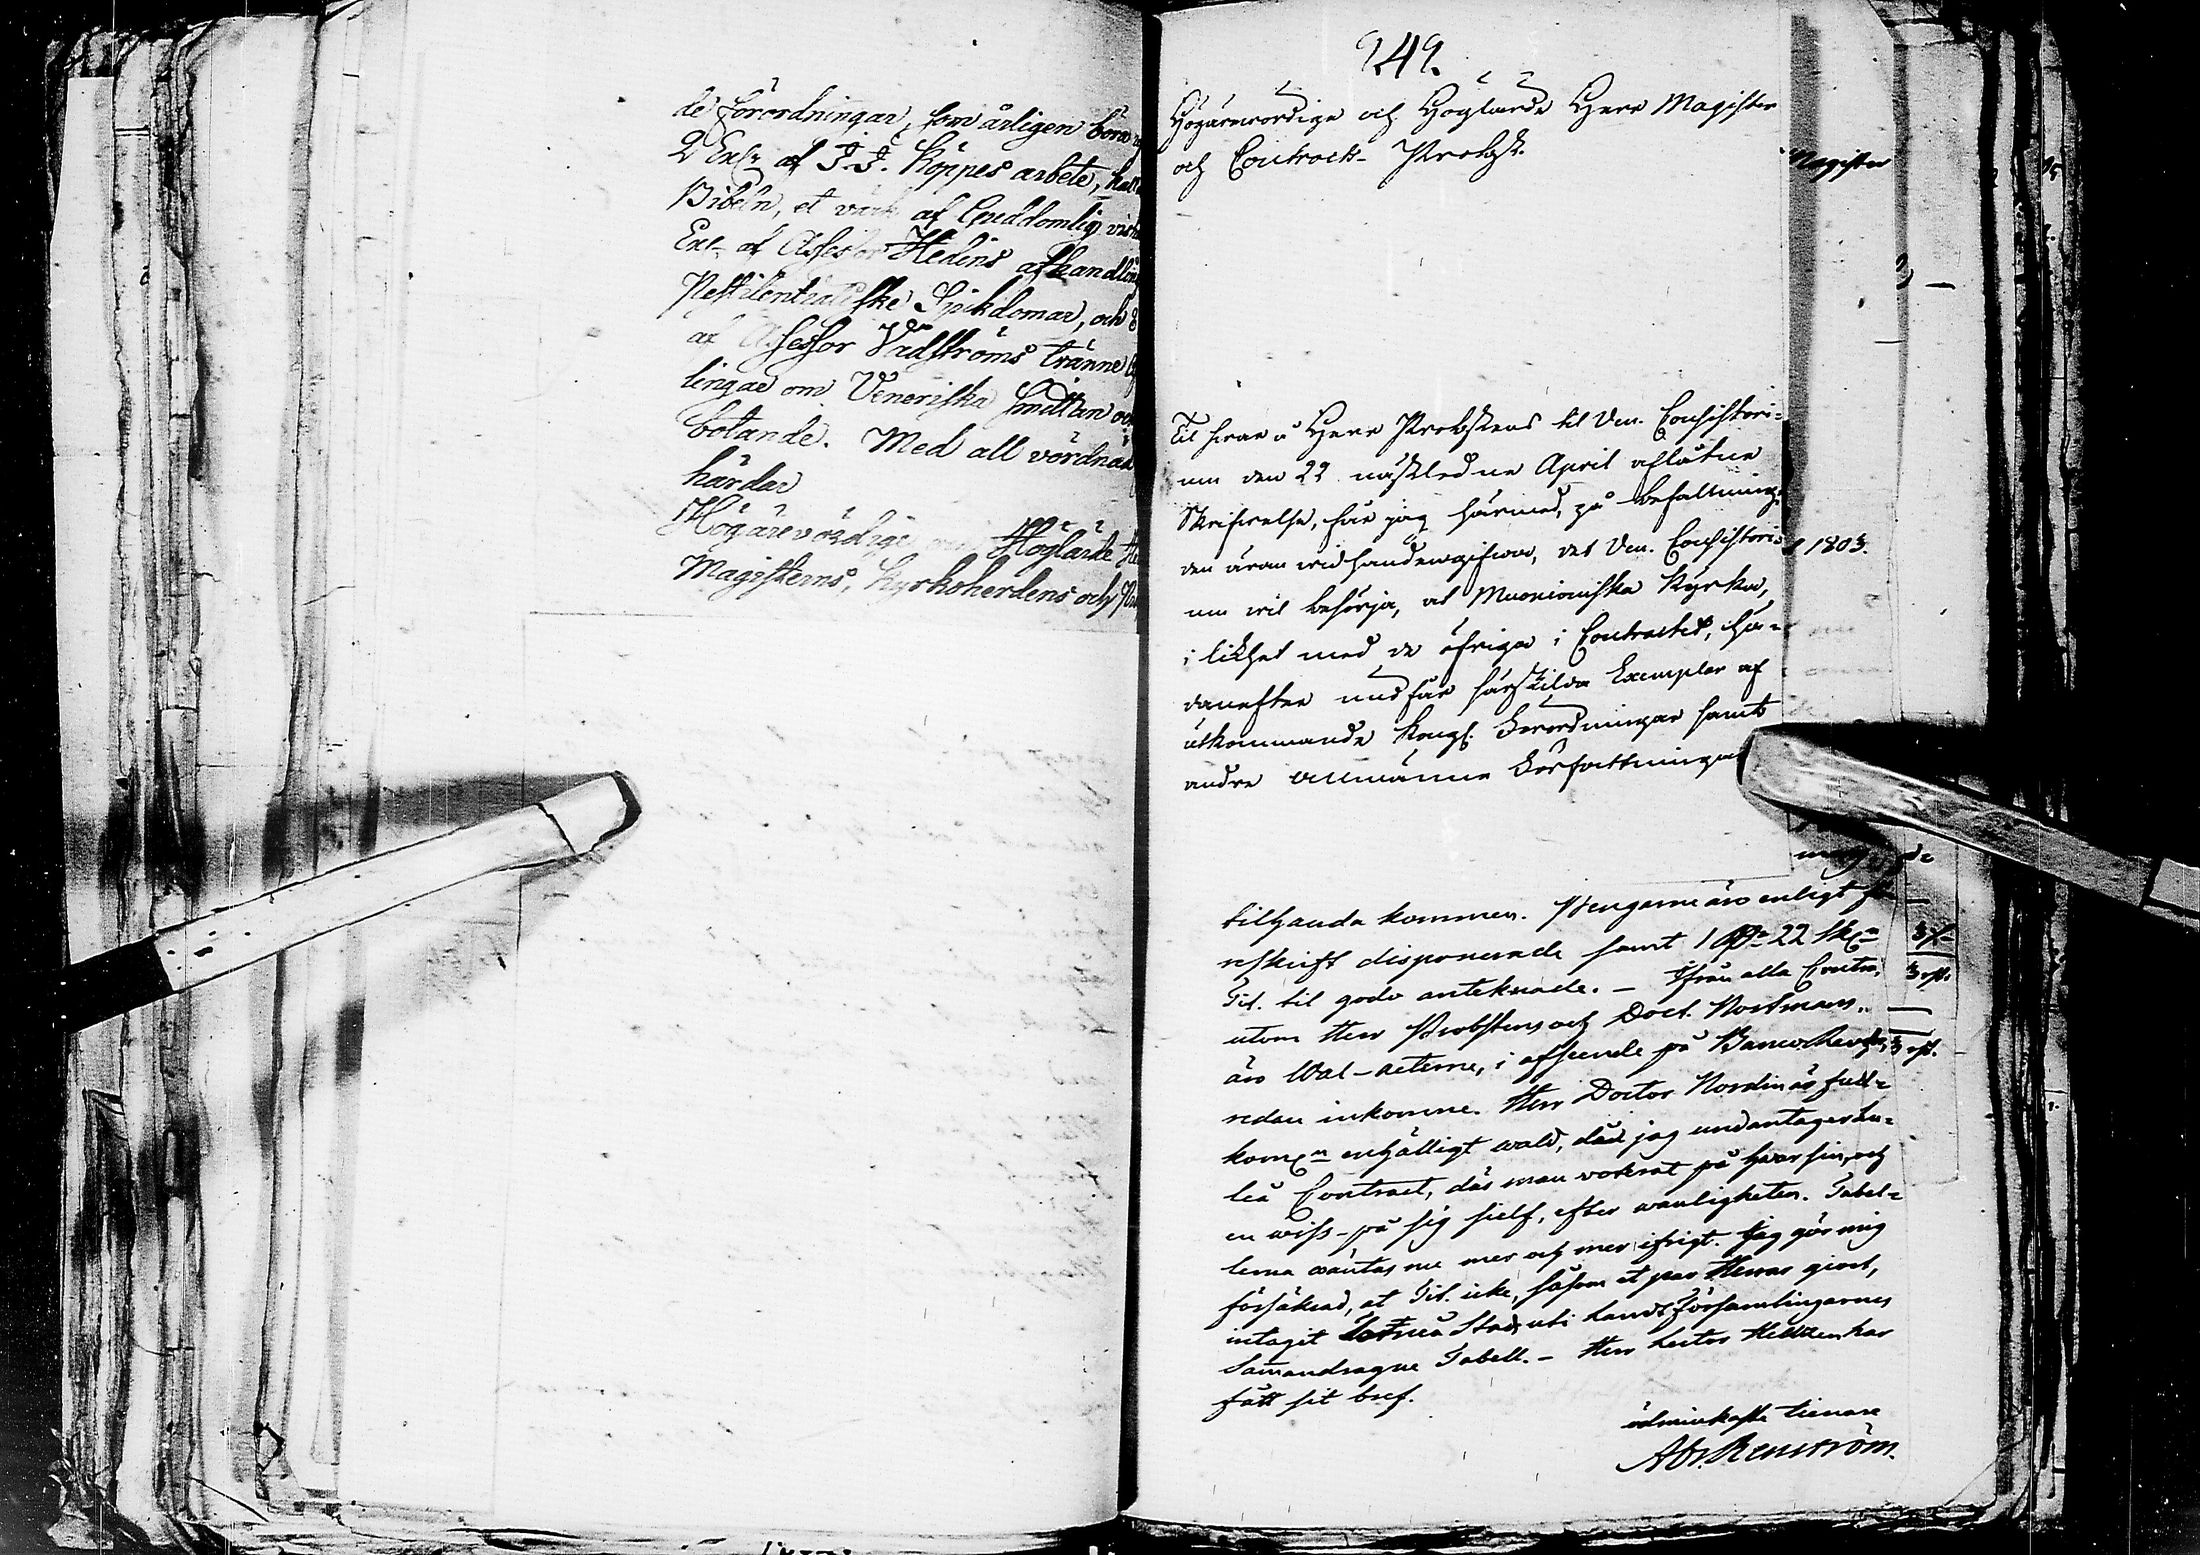 de förordningar, som årligen böra
2 Exr af J. J. Köppes arbete, kall
Bibeln, et värk af Guddomlig vish
Exr af Assessor Hedins afhandling
Pestilentialiske Sjukdomar, och 8
af Assessor Vadströms tränne
lingar om Veneriska Smittan och
botande. Med all vördnad
härdar
Högärevördige och Höglärde
Magisterns, Kyrkoherdens och
949.
Högärewördige och Höglärde Herr Magister
och Contracts-Probst.
Magister
Til swar å Herr Probstens til Ven. Consistori-
um den 22 nästledne April aflåtne
Skrifwelse, får jag härmed, på befallning,
den äran widhandengifwa, det Ven. Consistori-
1803.
um wil besörja, at Muonioniska Kyrka,
i likhet med de öfriga i Contractet, hä-
danefter undfår särskilda Exemplar af
utkommande Kongl. Förordningar samt
andre allmänna Författningar
tilhanda kommer. Pengarne äro enligt
reskrift disponerade samt 1 Rdr 22 sk
Tit. til godo anteknade. - Ifrån alla Contr.
utom Herr Probstens och Doct. Nordmans
äro Wal-acterne, i afseende på
redan inkomne. Herr Doctor Nordin är full-
komn enhälligt wald, då jag undantager Lu-
leå Contract, där man voterat på hwar sin, och
en wiss på sig sielf, efter wanligheten. Tabel-
lerna wäntas nu mer och mer ifrigt. Jag gör mig
försäkrad, at Tit. icke, såsom et par Herrar giort,
intagit Torneå Stad uti Landtförsamlingarnes
Samandragne Tabell. - Herr Lector har
fått sit bref.
ödmiukaste tienare
Abr. Renström.